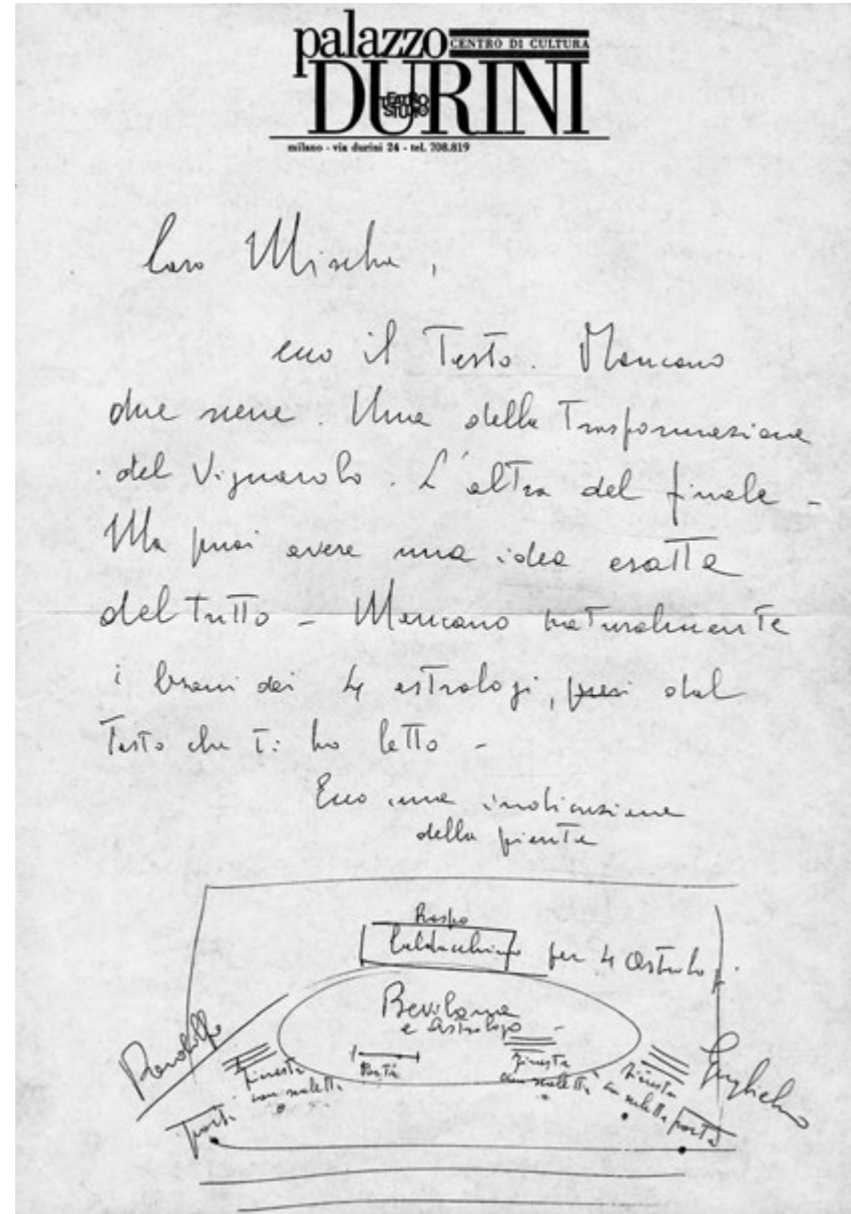 palazzo
CENTRO DI CULTURA
DURINI
TEATRO
STUDIO
milano - via durini 24 - tel. 708.819
Caro Mischa,
ecco il Testo. Mancano
due scene. Una della Trasformazione
del Vignarolo. L'altra del finale -
Ma puoi avere una idea esatta
del tutto - Mancano naturalmente
i brani dei 4 astrologi, presi dal
Testo che Ti ho letto -
Ecco una indicazione
della pianta
baldacchino per 4 astrologi
Bevilona
e astrologo
Pandolfo
finestra
con scaletta
Porta
finestra
con scaletta
finestra
con scaletta
Guglielmo
porta
porta